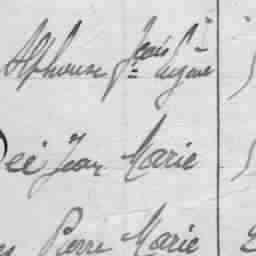 Alphonse Jean Eugène
Jean Marie
Pierre Marie